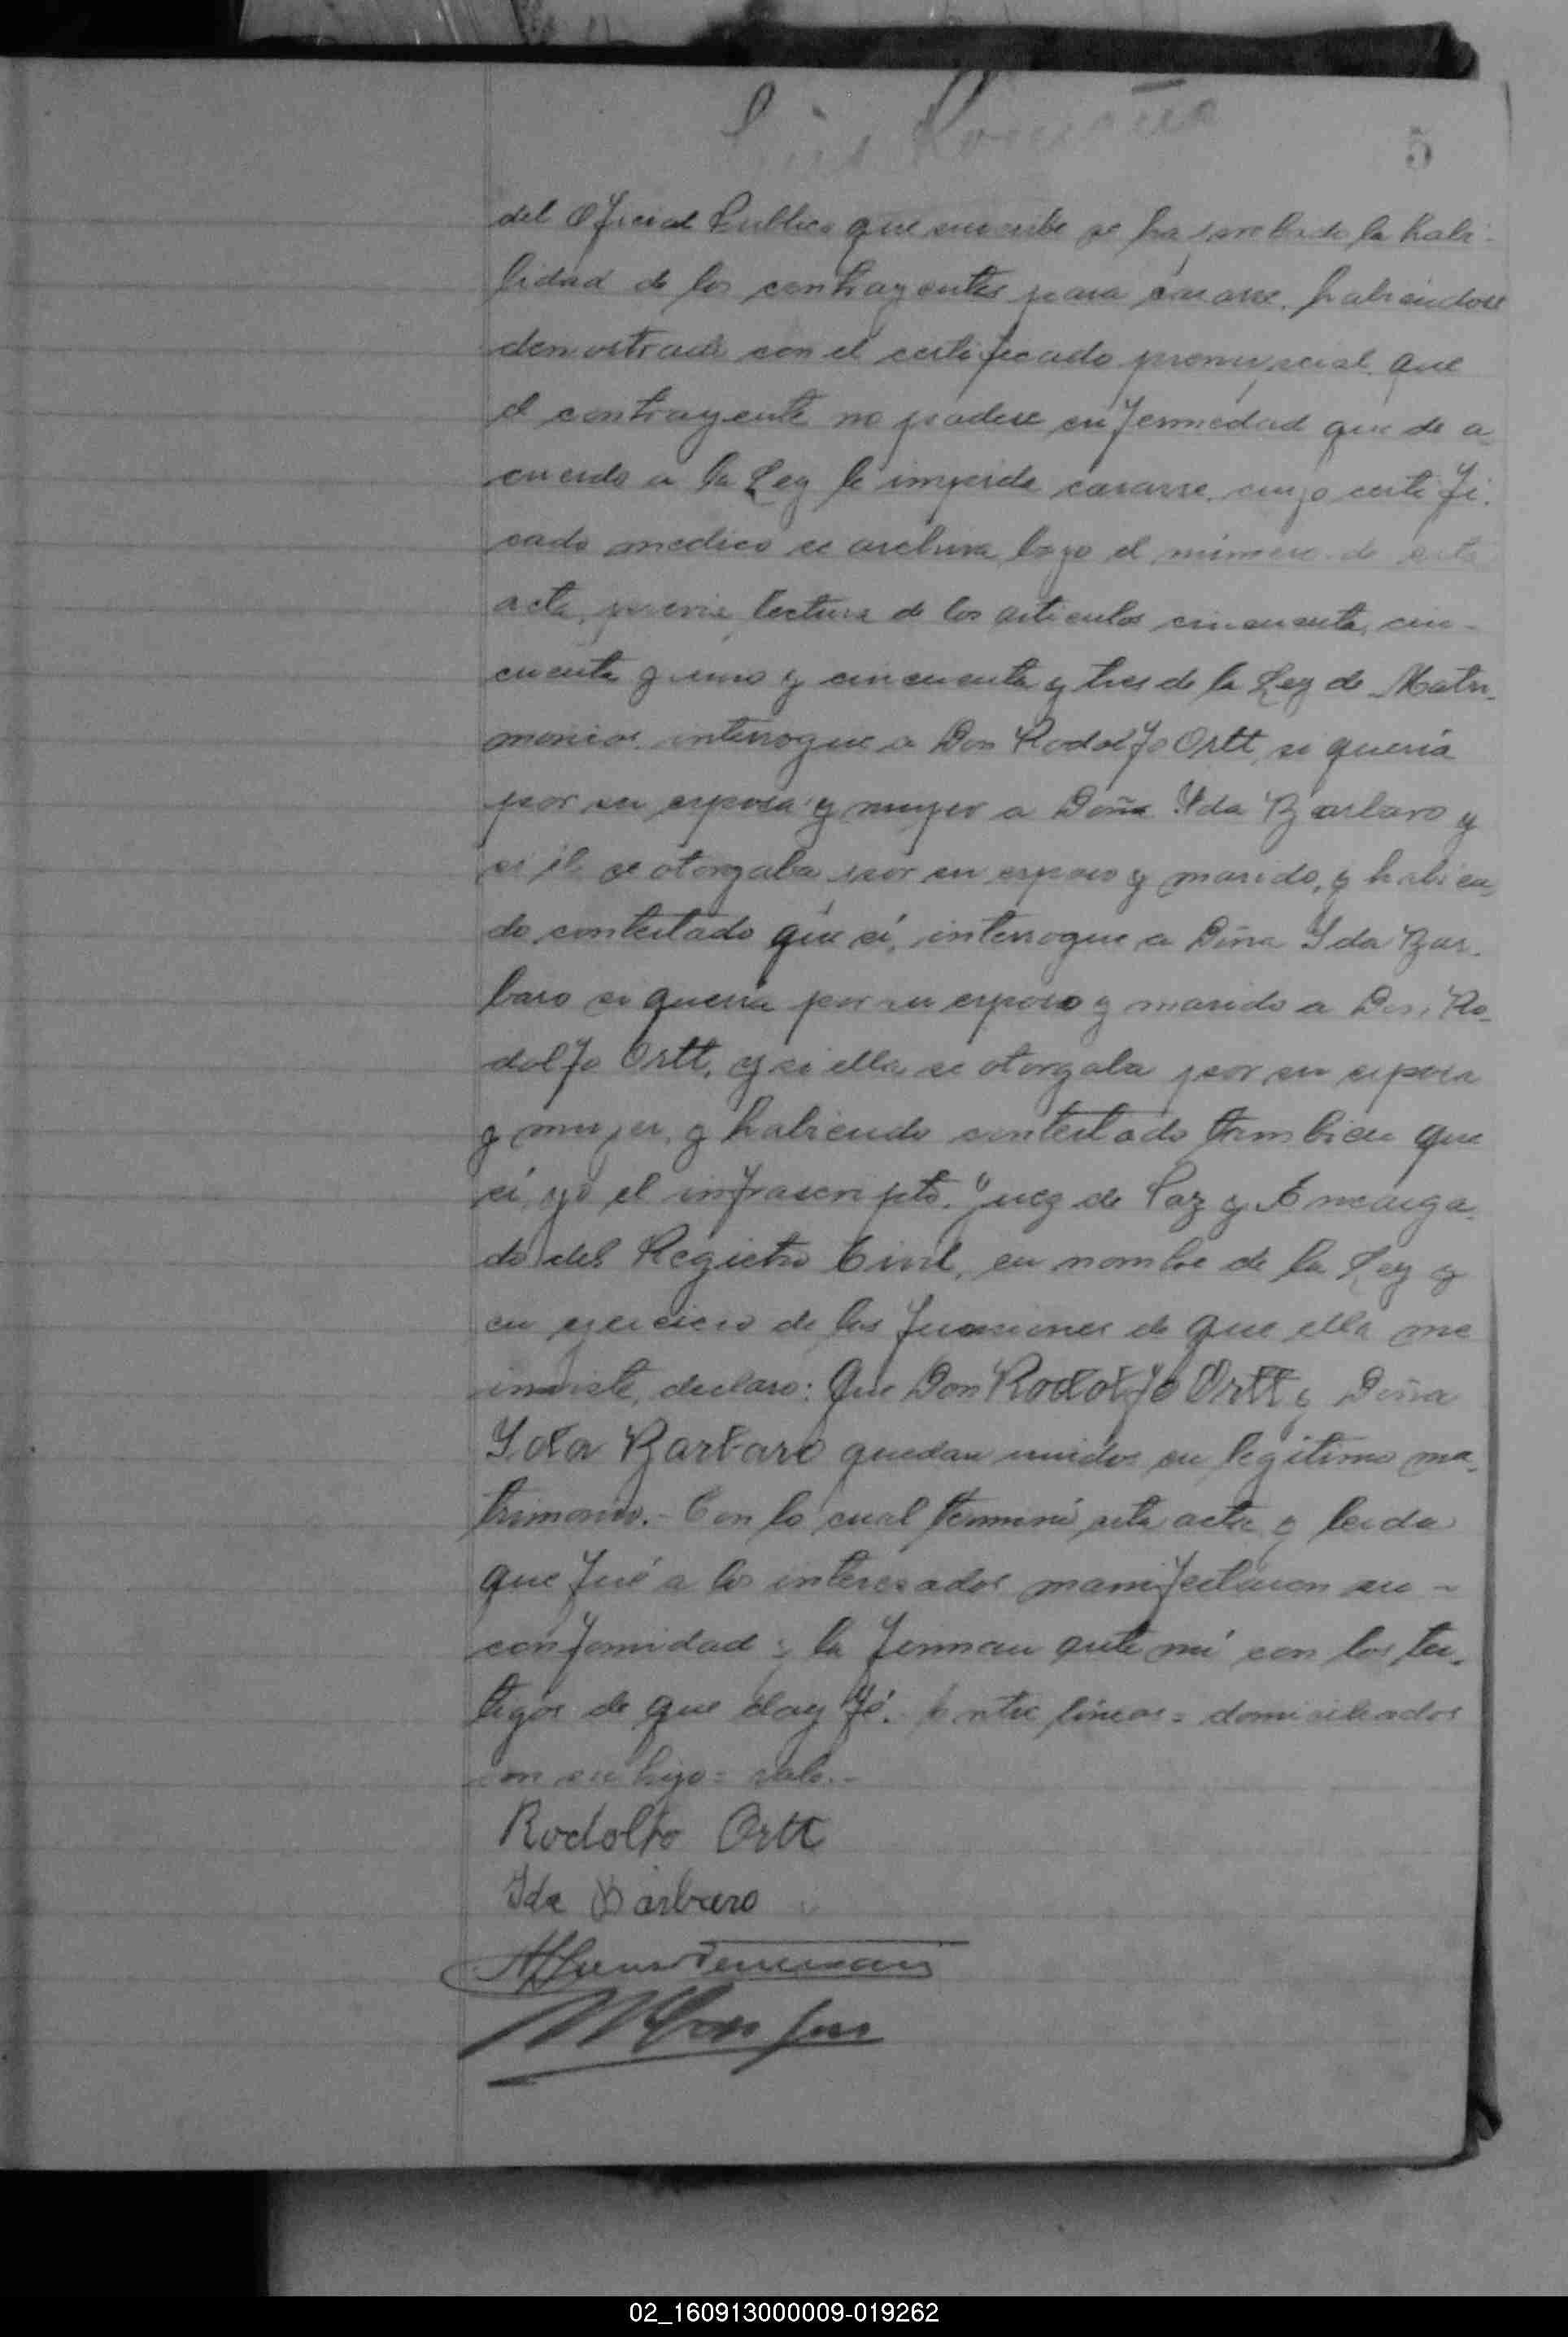 Luis
5
del Oficial Publico que suscribe se ha probado la habi-
lidad de los contrayentes para casarse, habiendose
demostrado con el certificado prenupcial que
el contrayente no padece enfermedad que de a-
cuerdo a la Ley le impida casarse, cuyo certifi-
cado medico se archiva bajo el número de esta
acta, previa lectura de los articulos cincuenta, cin-
cuenta y uno y cincuenta y tres de la Ley de Matri-
monios interrogue a Don Rodolfo Ortt, si queria
por su esposa y mujer a Doña Ida Barbaro y
si él se otorgaba por su esposo y marido, y habien-
do contestado que sí, interrogue a Doña Ida Bar-
baro si queria por su esposo y marido a Don Ro-
dolfo Ortt, y si ella se otorgaba por su esposa
y mujer, y habiendo contestado tambien que
sí, yo el infrascripto, Juez de Paz y Encarga-
do del Registro Civil, en nombre de la Ley y
en ejercicio de las funciones de que ella me
inviste, declaro: Que Don Rodolfo Ortt y Doña
Ida Barbaro quedan unidos en legítimo ma-
trimonio.- Con lo cual terminó esta acta y leida
que fué a los interesados manifestaron su -
conformidad y la firman ante mí con los tes-
tigos de que doy fé. Entre líneas = domiciliados
con su hijo = vale.-
Rodolfo Ortt
Ida Barbaro
02_160913000009-019262